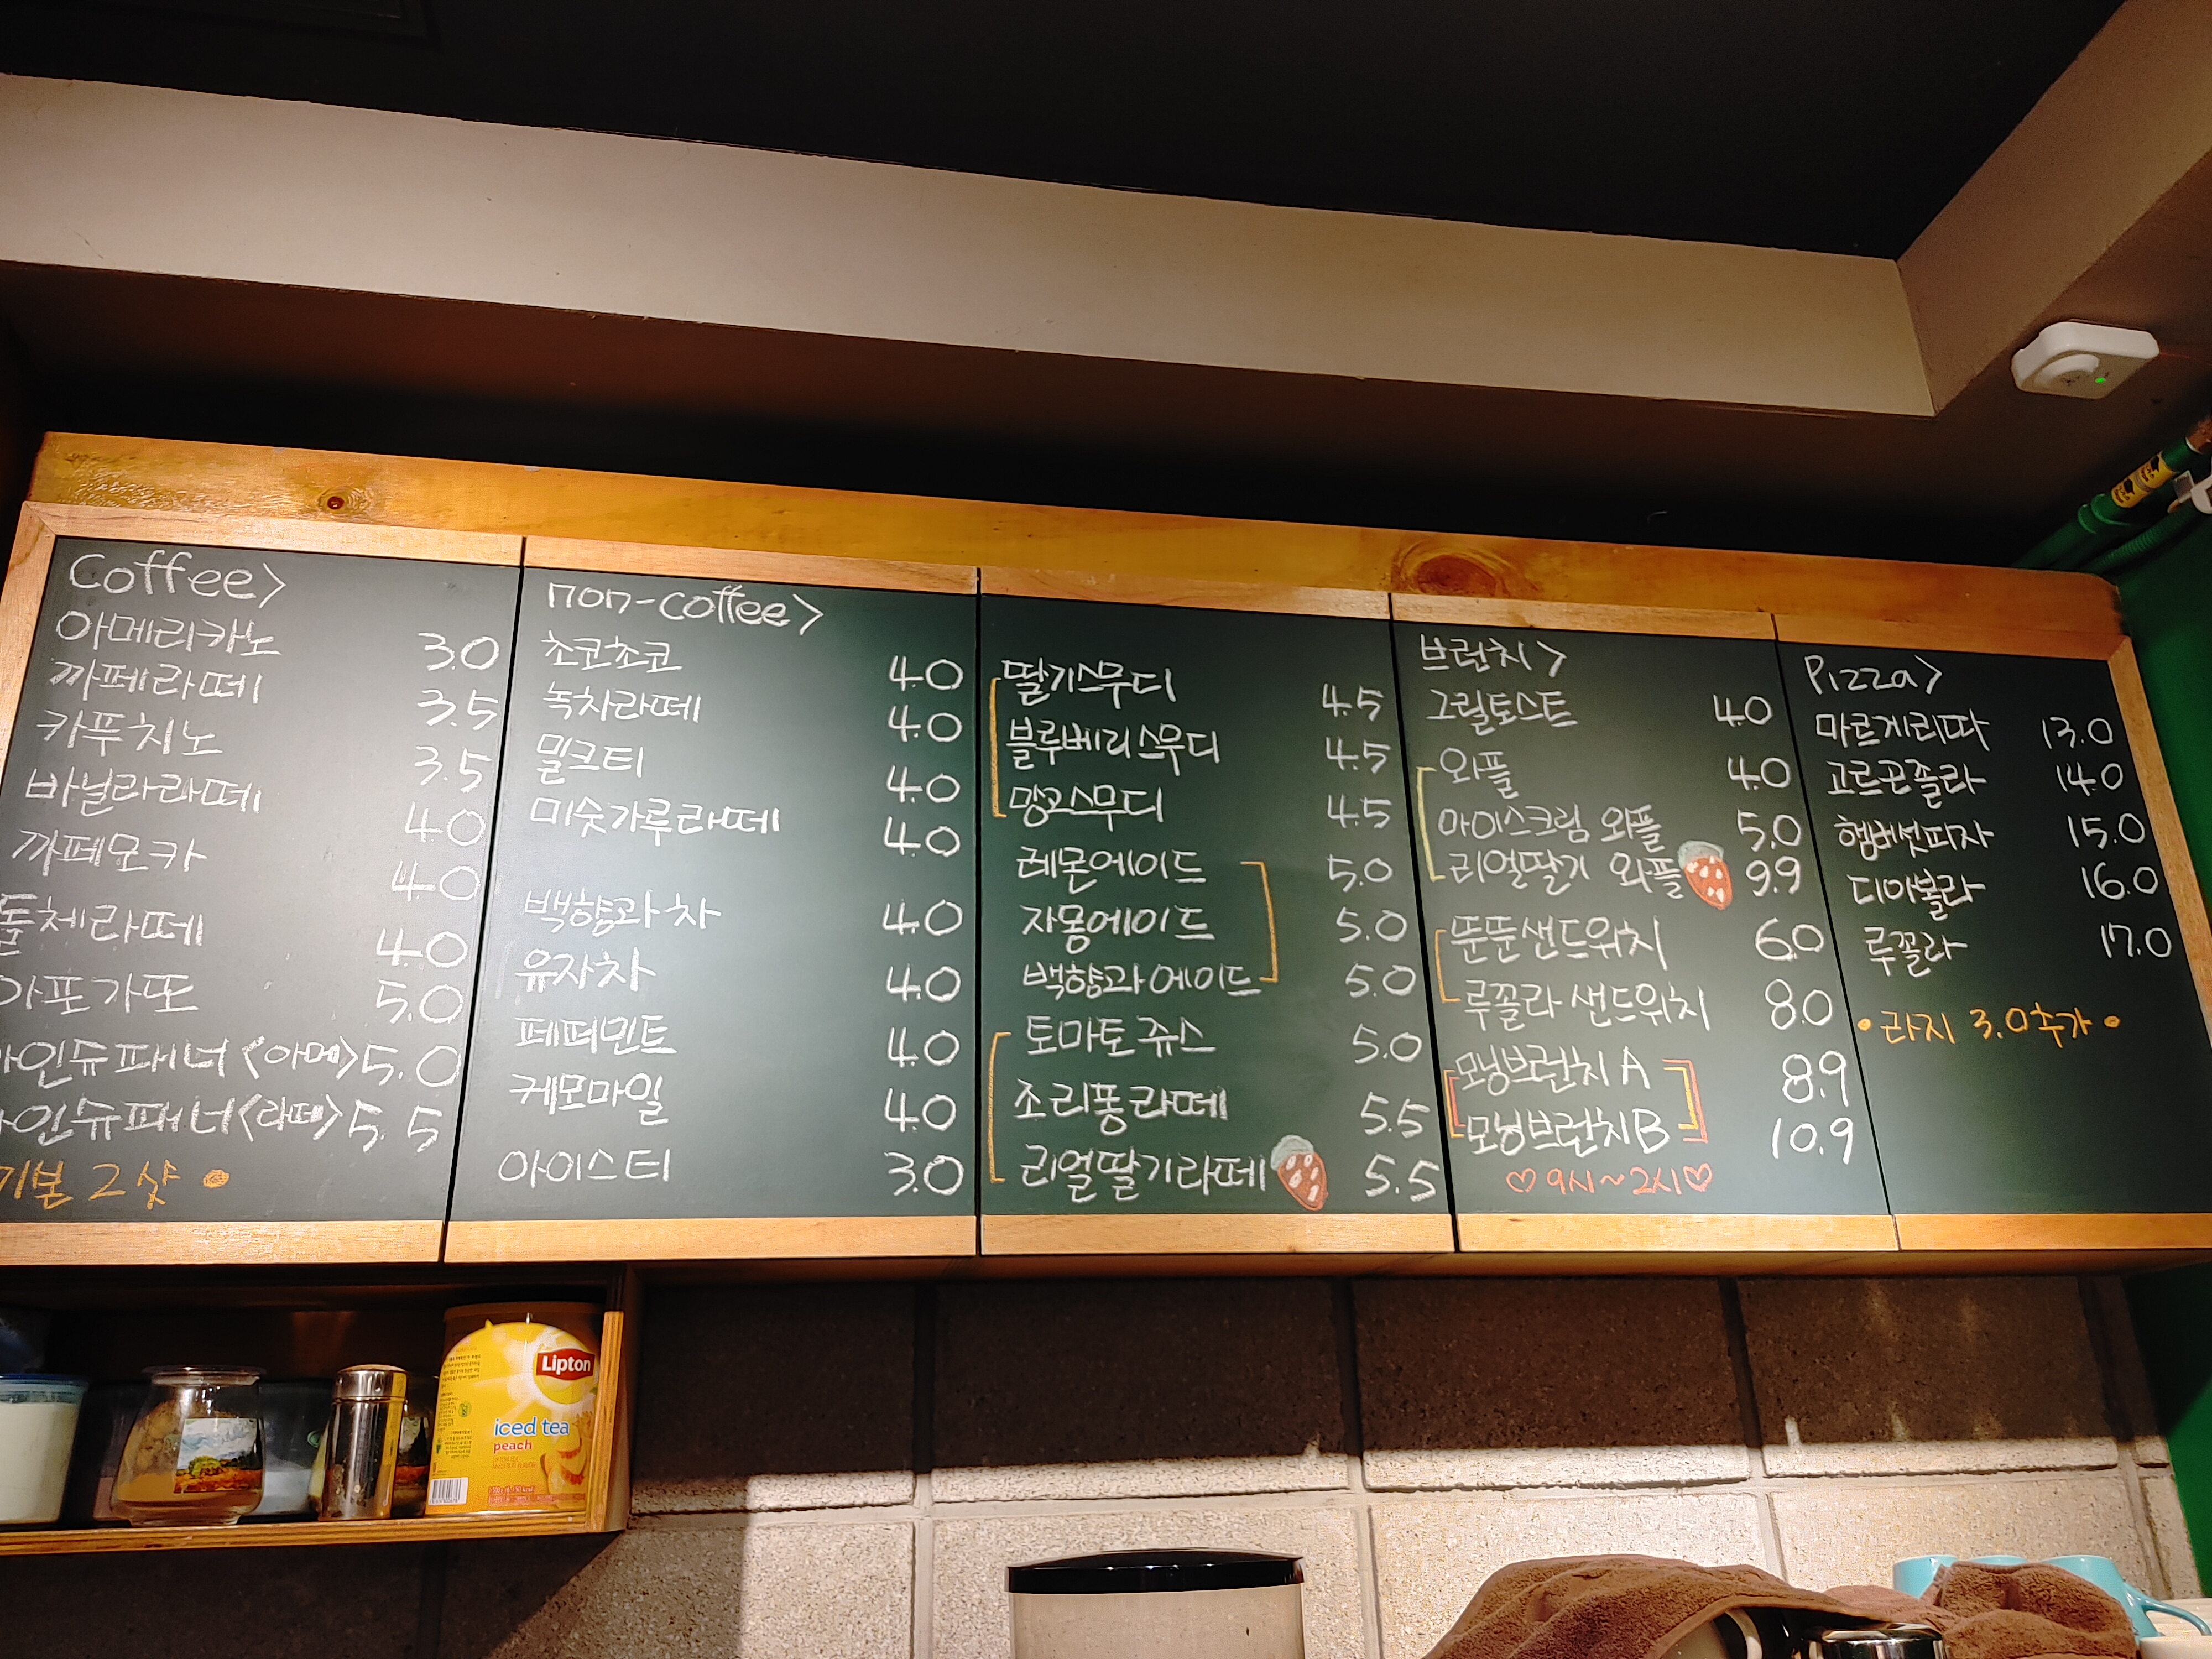 Coffee>
아메리카노 3.0
까페라떼 3.5
카푸치노 3.5
바닐라라떼 4.0
까페모카 4.0
돌체라떼 4.0
아포가또 5.0
아인슈패너<아메> 5.0
아인슈패너<라떼> 5.5
기본 2샷
non-coffee>
초코초코 4.0
녹차라떼 4.0
밀크티 4.0
미숫가루라떼 4.0
백향과차 4.0
유자차 4.0
페퍼민트 4.0
케모마일 4.0
아이스티 3.0
딸기스무디 4.5
블루베리스무디 4.5
망고스무디 4.5
레몬에이드 5.0
자몽에이드 5.0
백향과에이드 5.0
토마토쥬스 5.0
조리퐁라떼 5.5
리얼딸기라떼 5.5
브런치>
그릴토스트 4.0
와플 4.0
아이스크림 와플 5.0
리얼딸기 와플 9.9
뚠뚠샌드위치 6.0
루꼴라 샌드위치 8.0
모닝브런치 A 8.9
모닝브런치 B 10.9
♡ 9시~2시 ♡
Pizza>
마르게리따 13.0
고르곤졸라 14.0
햄버섯피자 15.0
디아볼라 16.0
루꼴라 17.0
• 라지 3.0 추가 •
Lipton
iced tea
peach